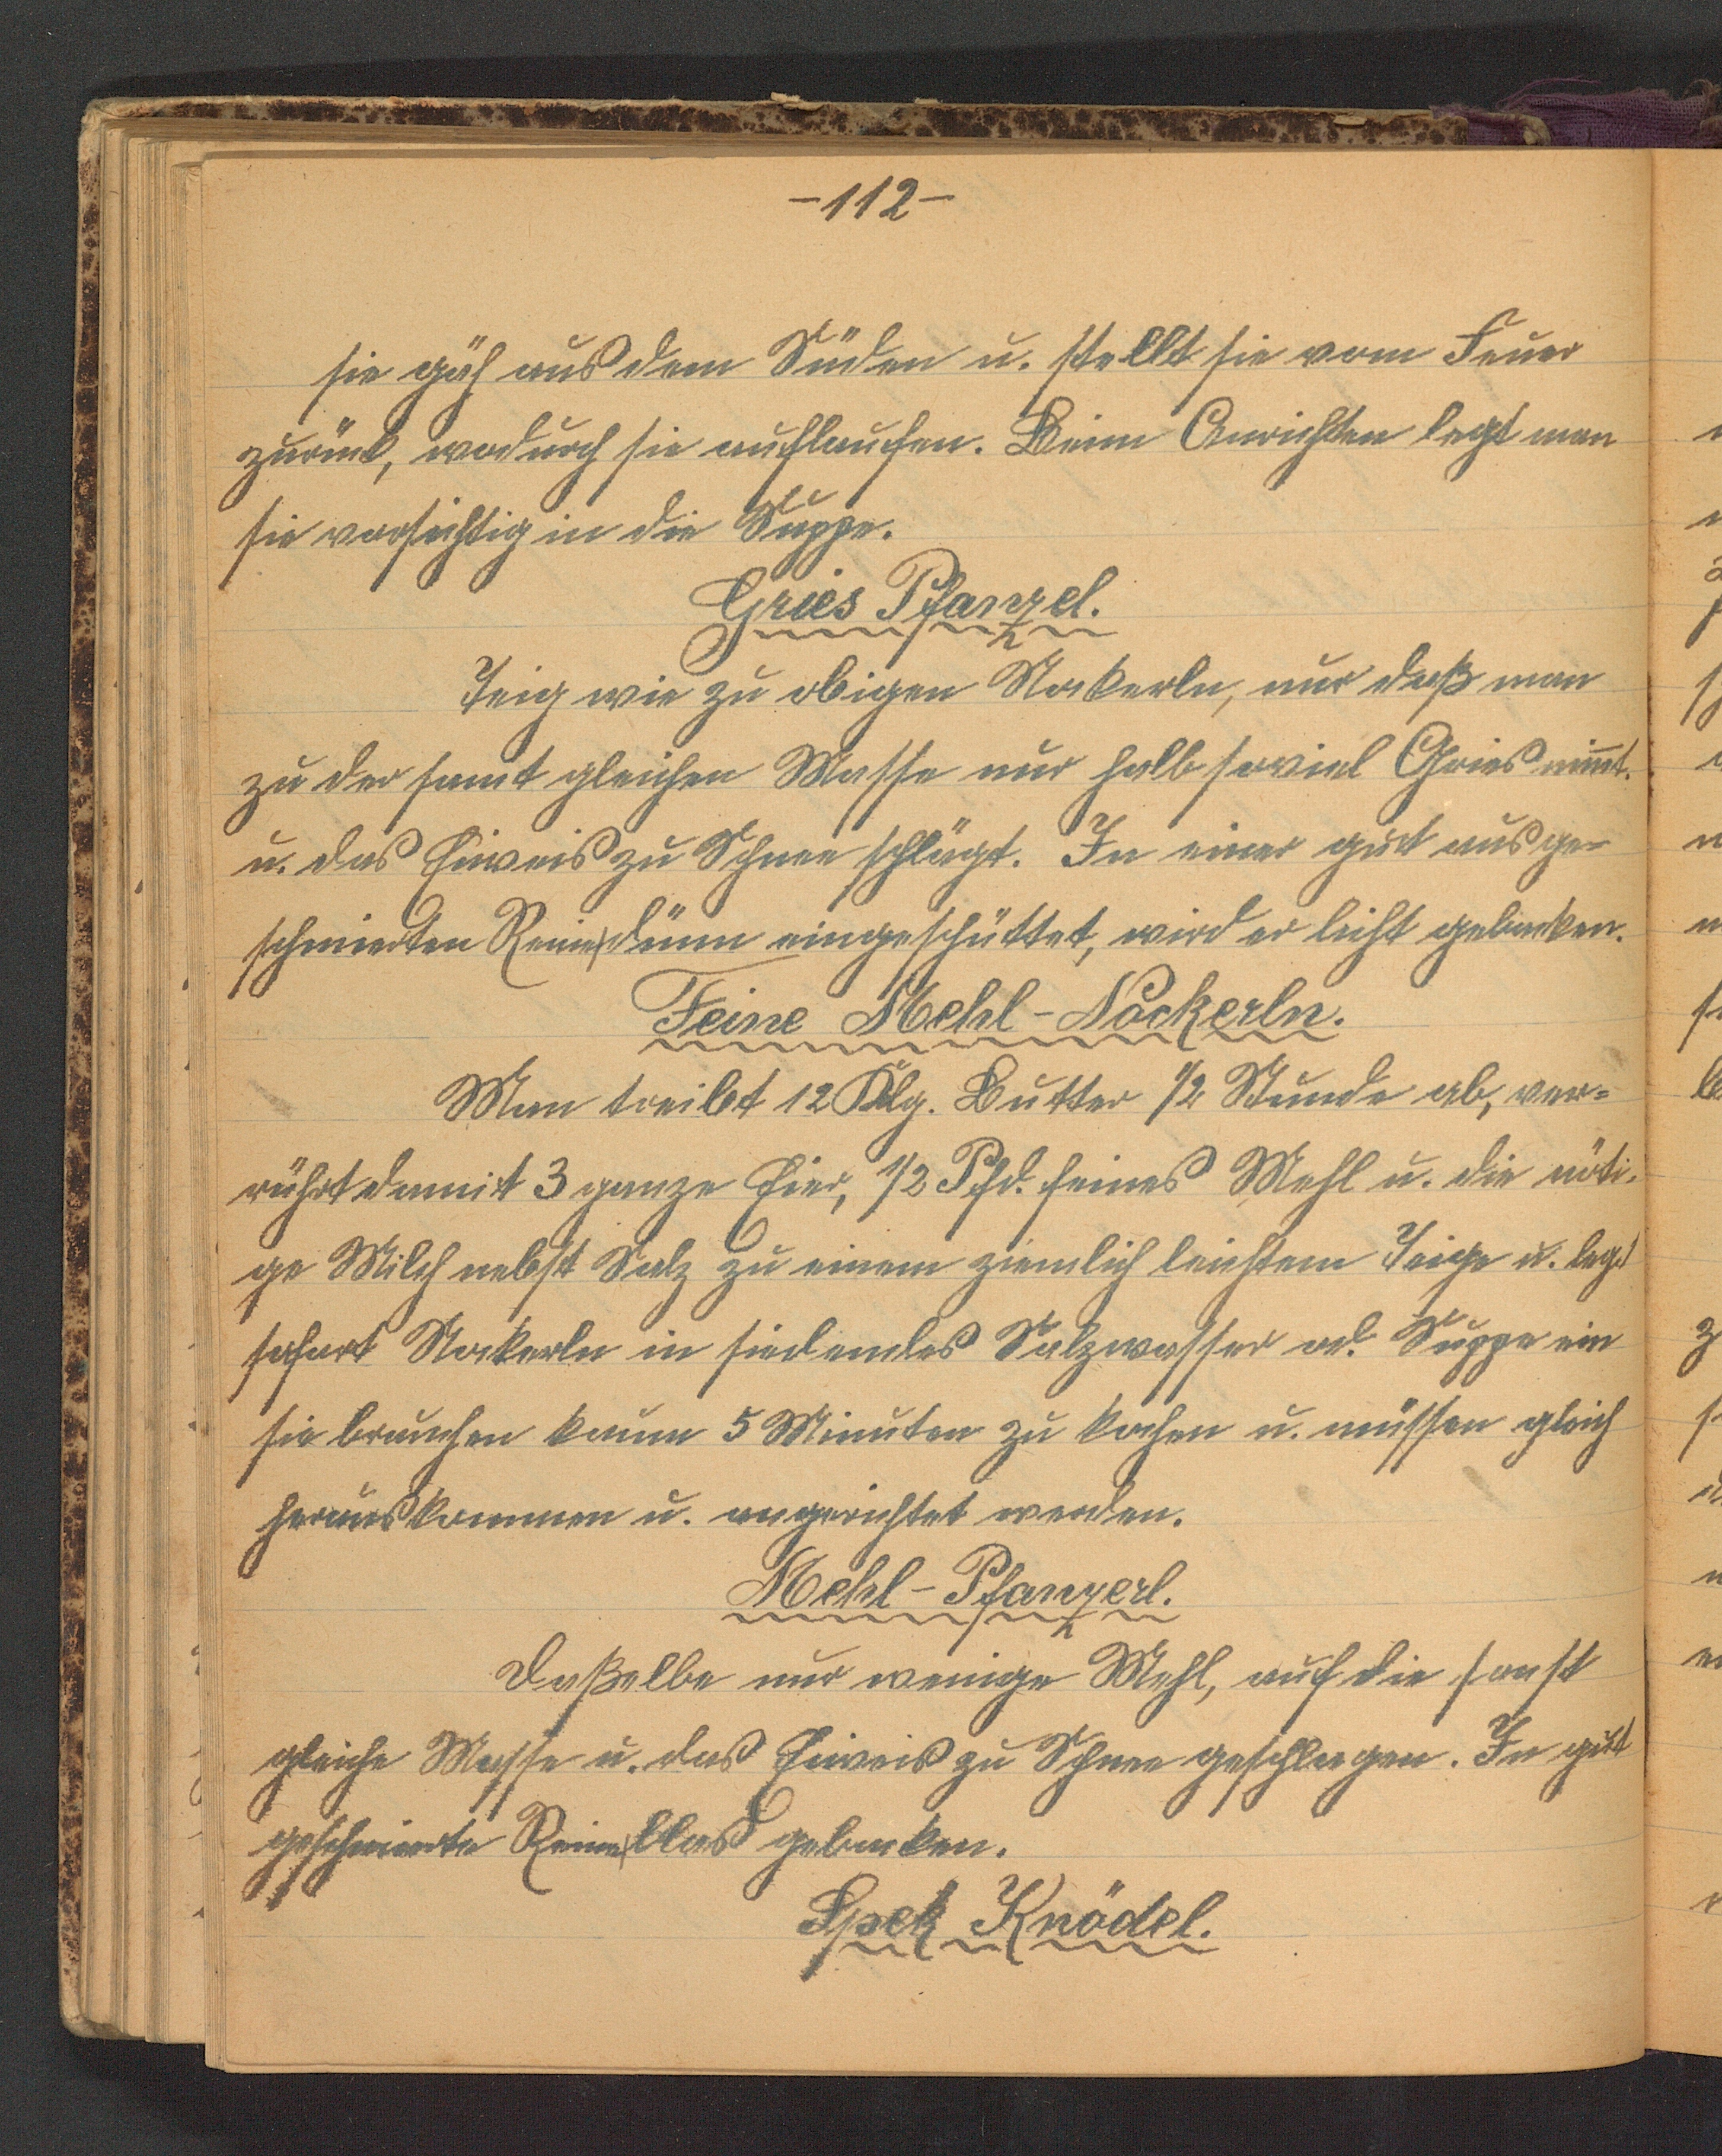 -112-
sie gäh aus dem Süden u. stellt sie vom Feuer
zurück, wodurch sie auflaufen. Beim Anrichten legt man
sie vorsichtig in die Suppe.
Gries Pfanzel.
Teig wie zu obigen Nockerln, nur daß man
zu der samt gleichen Masse nur halb soviel Gries nim̄t.
u. das Eiweis zu Schnee schlägt. In einer gut ausge-
schmierten Reine dünn eingeschüttet, wird er licht gebacken.
Feine Mehl-Nockerln.
Man treibt 12 Dkg. Butter 1/2 Stunde ab, ver=
rührt damit 3 ganze Eier, 1/2 Pfd. feines Mehl u. die nöti-
ge Milch nebst Salz zu einem ziemlich leichtem Teige u. legt
sofort Nockerln in siedendes Salzwasser od. Suppe ein
sie brauchen kaum 5 Minuten zu kochen u. müssen gleich
herauskommen u. angerichtet werden.
Mehl-Pfanzerl.
Daßelbe nur wenige Mehl, auf die sonst
gleiche Masse u. das Eiweis zu Schnee geschlagen. In gut
geschmierte Reine blas gebacken.
Spek Knödel.